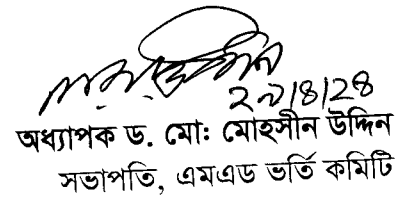 ২৯/৪/২৪
অধ্যাপক ড. মো: মোহসীন উদ্দিন
সভাপতি, এমএড ভর্তি কমিটি